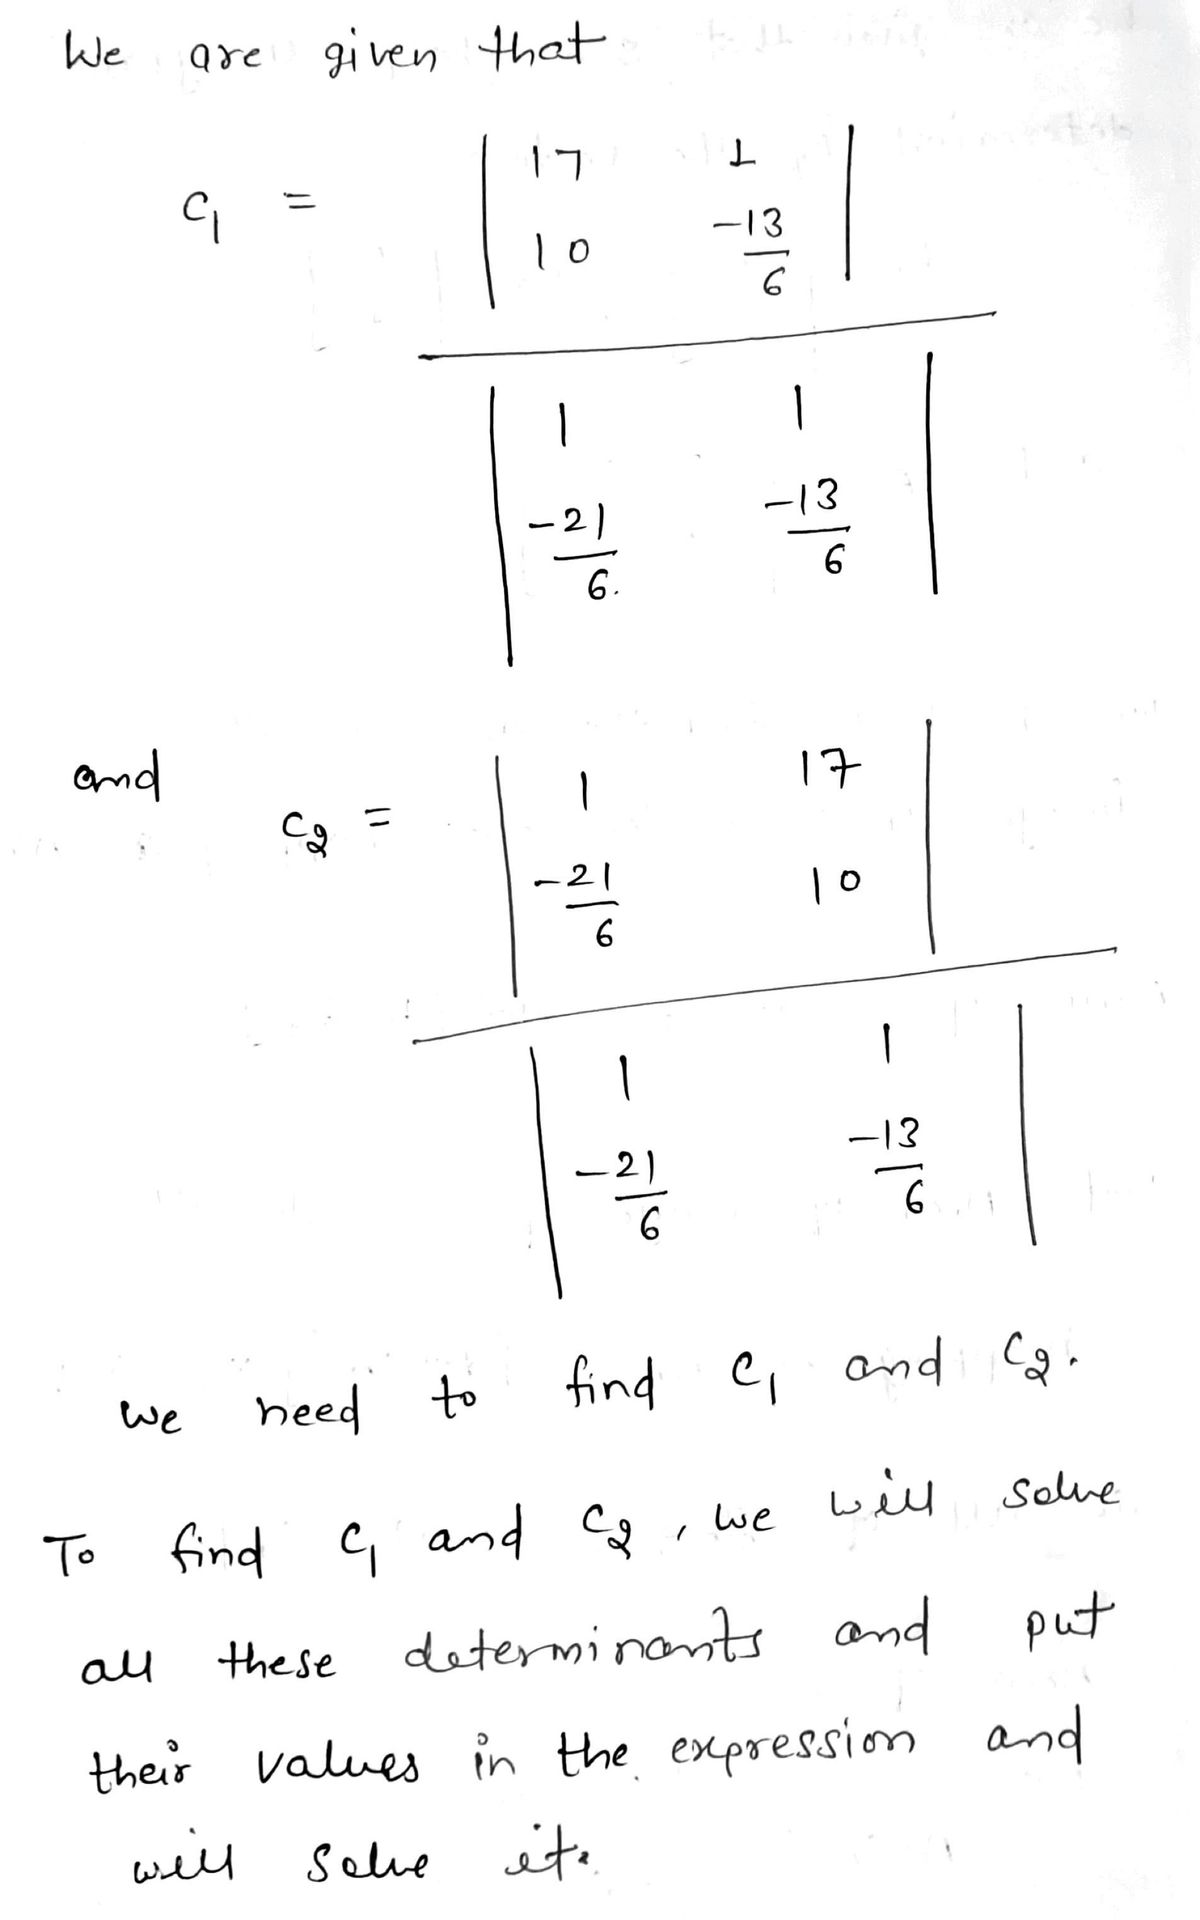 We are given that
C1 = | 17 1 |
| 10 -13/6 |
| 1 1 |
| -21/6. -13/6 |
and C2 = | 1 17 |
| -21/6 10 |
| 1 1 |
| -21/6 -13/6 |
We need to find C1 and C2.
To find C1 and C2, we will solve
all these determinants and put
their values in the expression and
will solve it.